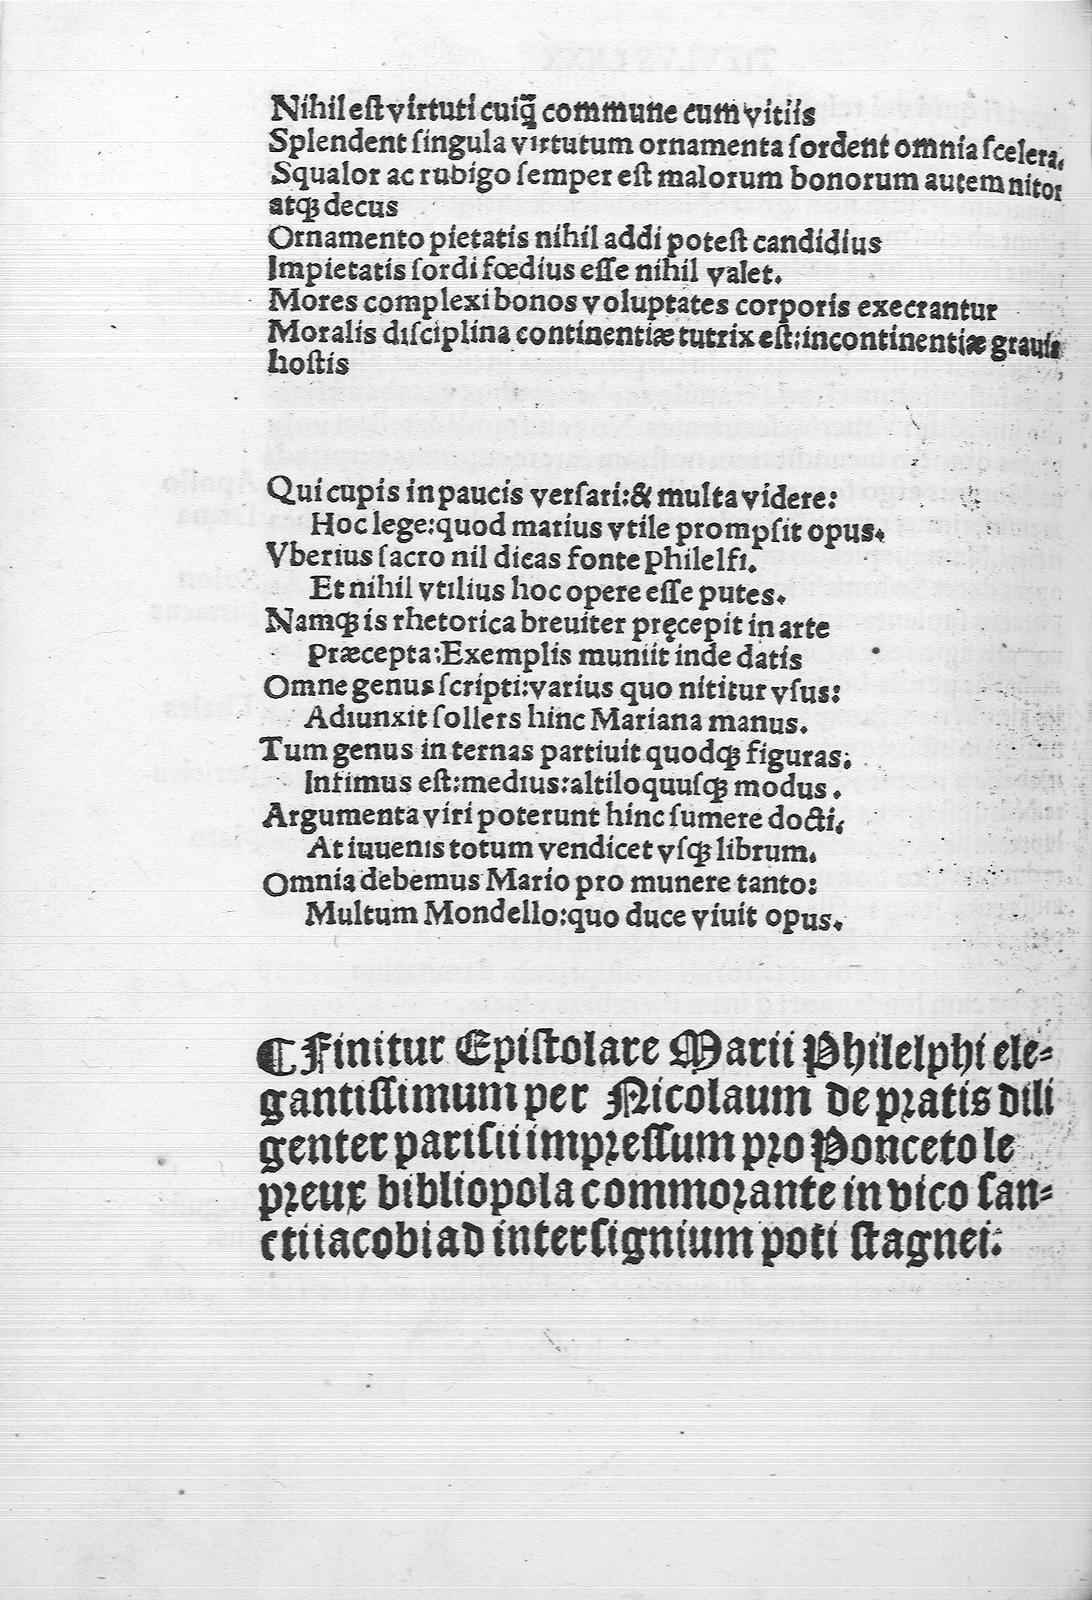 Nihil eſt virtuti cuiq̃ commune cum vitiis
Splendent ſingula virtutum ornamenta ſordent omnia ſcelera.
Squalor ac rubigo ſemper eſt malorum bonorum autem nitor
atqꝫ decus
Ornamento pietatis nihil addi poteſt candidius
Impietatis ſordi fœdius eſſe nihil valet.
Mores complexi bonos voluptates corporis execrantur
Moralis diſciplina continentiæ tutrix eſt:incontinentiæ grauis
hoſtis
Qui cupis in paucis verſari:& multa videre:
Hoc lege:quod marius vtile prompſit opus.
Vberius ſacro nil dicas fonte philelfi.
Et nihil vtilius hoc opere eſſe putes.
Namqꝫ is rhetorica breuiter pręcepit in arte
Præcepta:Exemplis muniit inde datis
Omne genus ſcripti:varius quo nititur vſus:
Adiunxit ſollers hinc Mariana manus.
Tum genus in ternas partiuit quodqꝫ figuras:
Infimus eſt:medius:altiloquuſqꝫ modus.
Argumenta viri poterunt hinc ſumere docti,
At iuuenis totum vendicet vſqꝫ librum.
Omnia debemus Mario pro munere tanto:
Multum Mondello:quo duce viuit opus.
¶ Finitur Epiſtolare Marii Philelphi ele⸗
gantiſſimum per Nicolaum de pꝛatis dili
genter pariſii impꝛeſſum pꝛo Ponceto le
pꝛeux bibliopola commoꝛante in vico ſan⸗
cti iacobi ad interſignium poti ſtagnei.